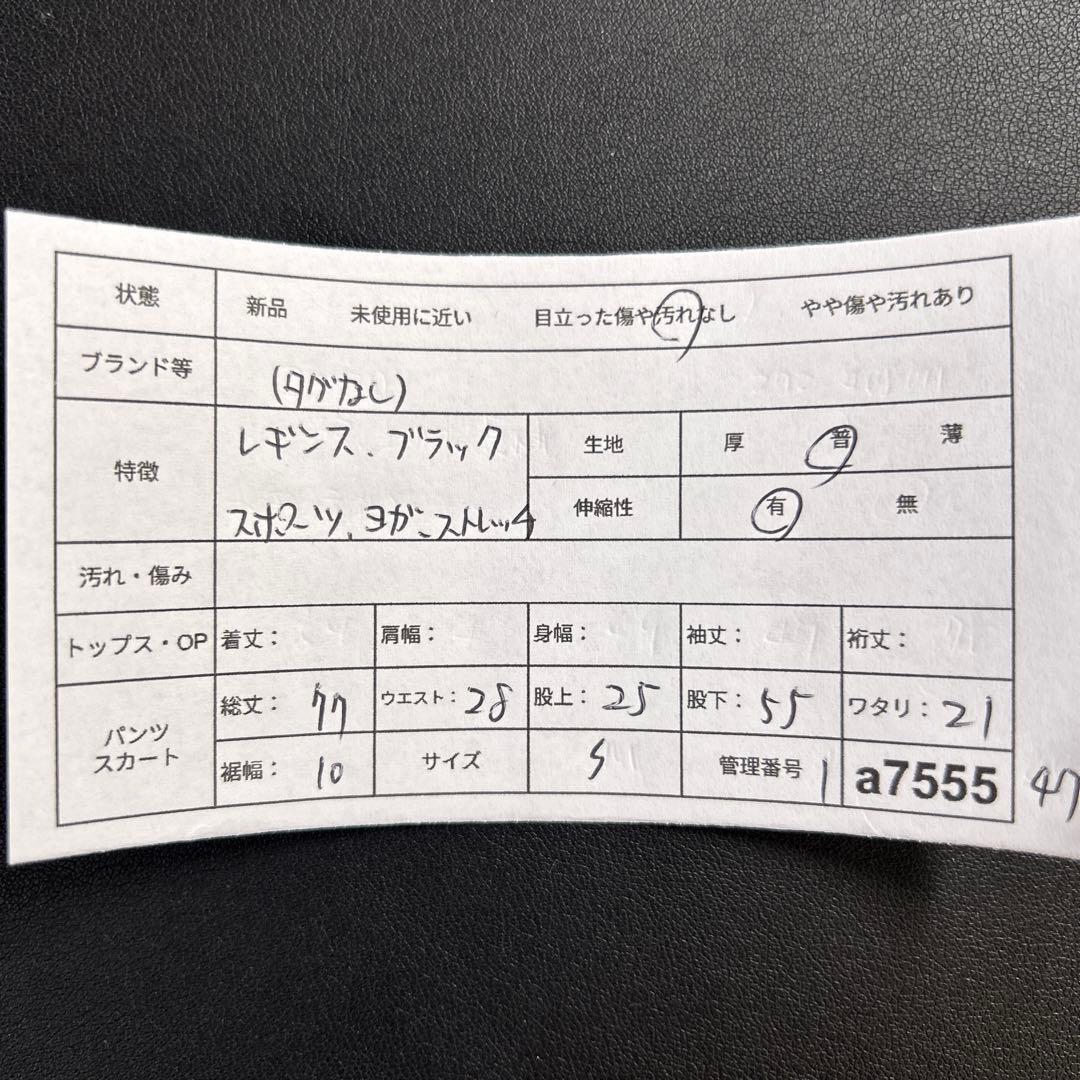 状態 新品 未使用に近い 目立った傷や汚れなし やや傷や汚れあり
ブランド等 (タグなし)
特徴 レギンス、ブラック 生地 厚 普 薄
スポーツ、ヨガ、ストレッチ 伸縮性 有 無
汚れ・傷み
トップス・OP 着丈： 肩幅： 身幅： 袖丈： 裄丈：
パンツ スカート 総丈：77 ウエスト：28 股上：25 股下：55 ワタリ：21
裾幅：10 サイズ S 管理番号 1 a7555 47